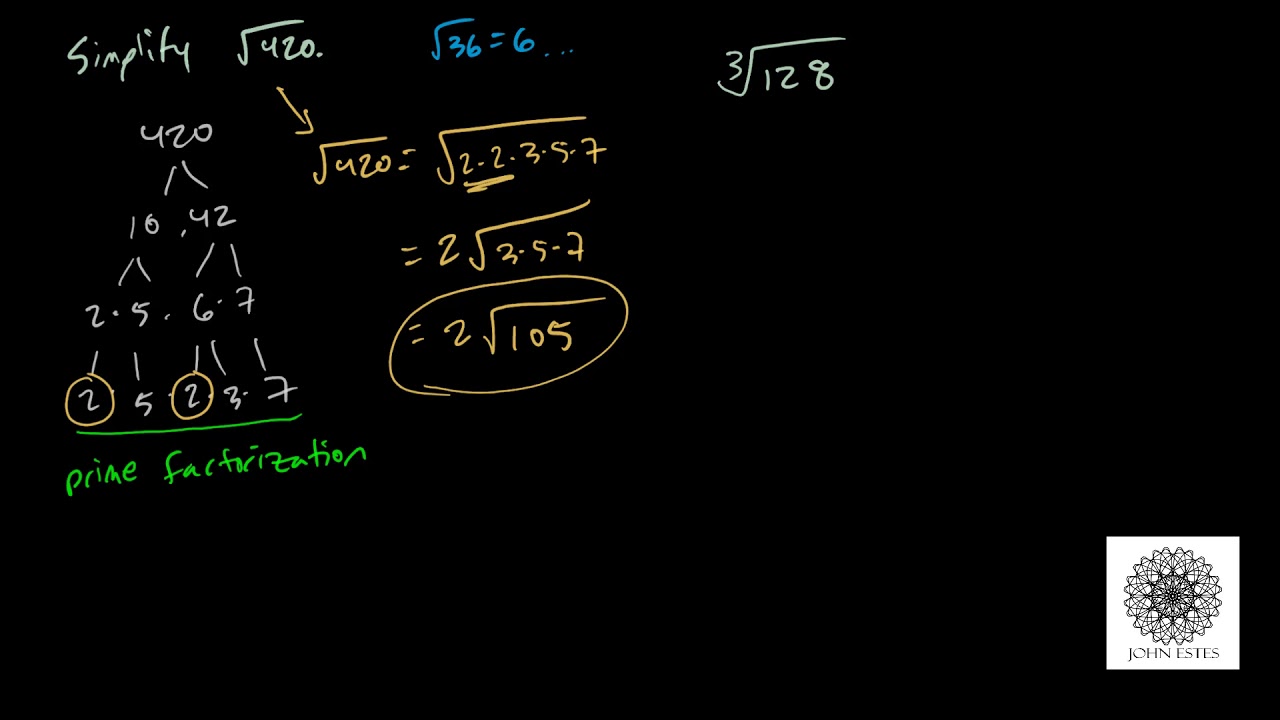 Simplify √420.
√36 = 6 ...
420
10 . 42
2 · 5 · 6 · 7
2 · 5 · 2 · 3 · 7
prime factorization
√420 = √2·2·3·5·7
= 2√3·5·7
= 2√105
³√128
JOHN ESTES